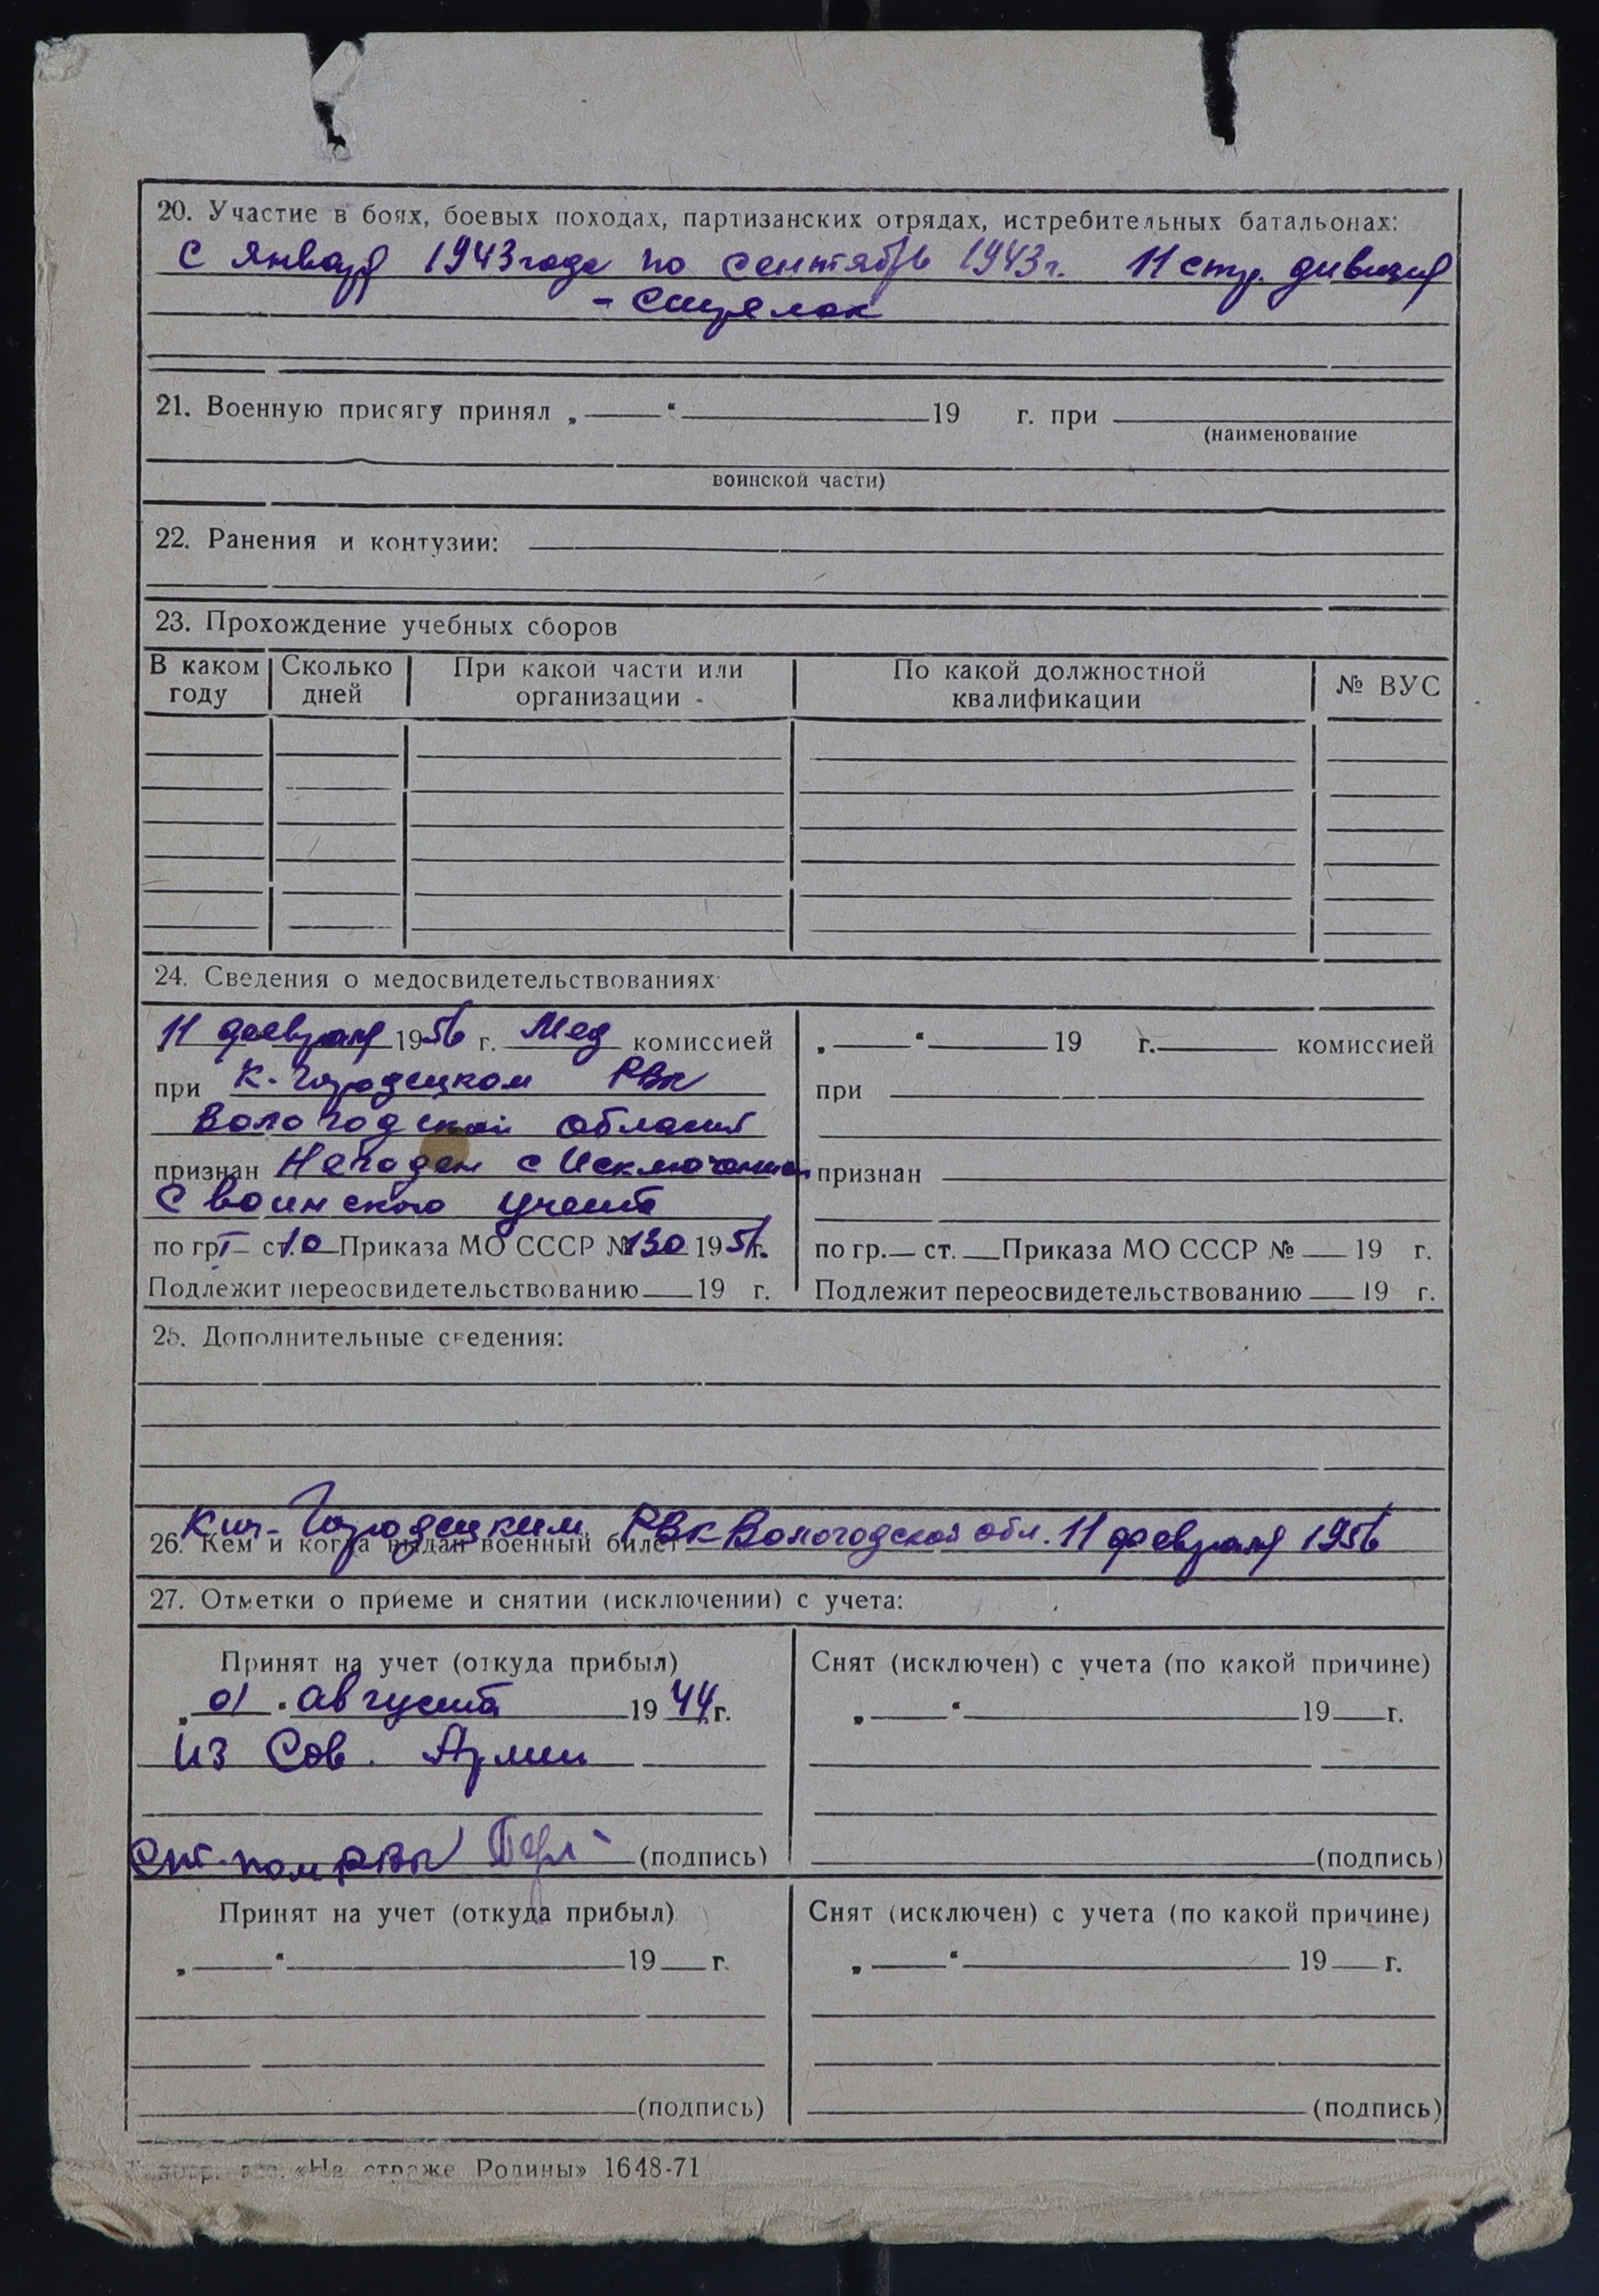 20. Участие в боях, боевых походах, партизанских отрядах, истребительных батальонах:
С января 1943 года по сентябрь 1943 г. 11 стр. дивизия
- стрелок
21. Военную присягу принял „ “ 19 г. при
(наименование
воинской части)
22. Ранения и контузии:
23. Прохождение учебных сборов
В каком году Сколько дней При какой части или организации По какой должностной квалификации № ВУС
24. Сведения о медосвидетельствованиях
11 февраля 1956 г. Мед комиссией
при К-Городецком РВК
Вологодской области
признан Негоден с Исключением
с воинского учета
по гр I ст 10 Приказа МО СССР № 130 1951 г.
Подлежит переосвидетельствованию 19 г.
„ “ 19 г. комиссией
при
признан
по гр. ст. Приказа МО СССР № 19 г.
Подлежит переосвидетельствованию 19 г.
25. Дополнительные сведения:
26. Кем и когда выдан военный билет Кич-Городецким РВК Вологодской обл. 11 февраля 1956
27. Отметки о приеме и снятии (исключении) с учета:
Принят на учет (откуда прибыл)
„ 01 . августа 1944 г.
из Сов. Армии
пом РВК (подпись)
Снят (исключен) с учета (по какой причине)
„ “ 19 г.
(подпись)
Принят на учет (откуда прибыл)
„ “ 19 г.
(подпись)
Снят (исключен) с учета (по какой причине)
„ “ 19 г.
(подпись)
«На страже Родины» 1648-71